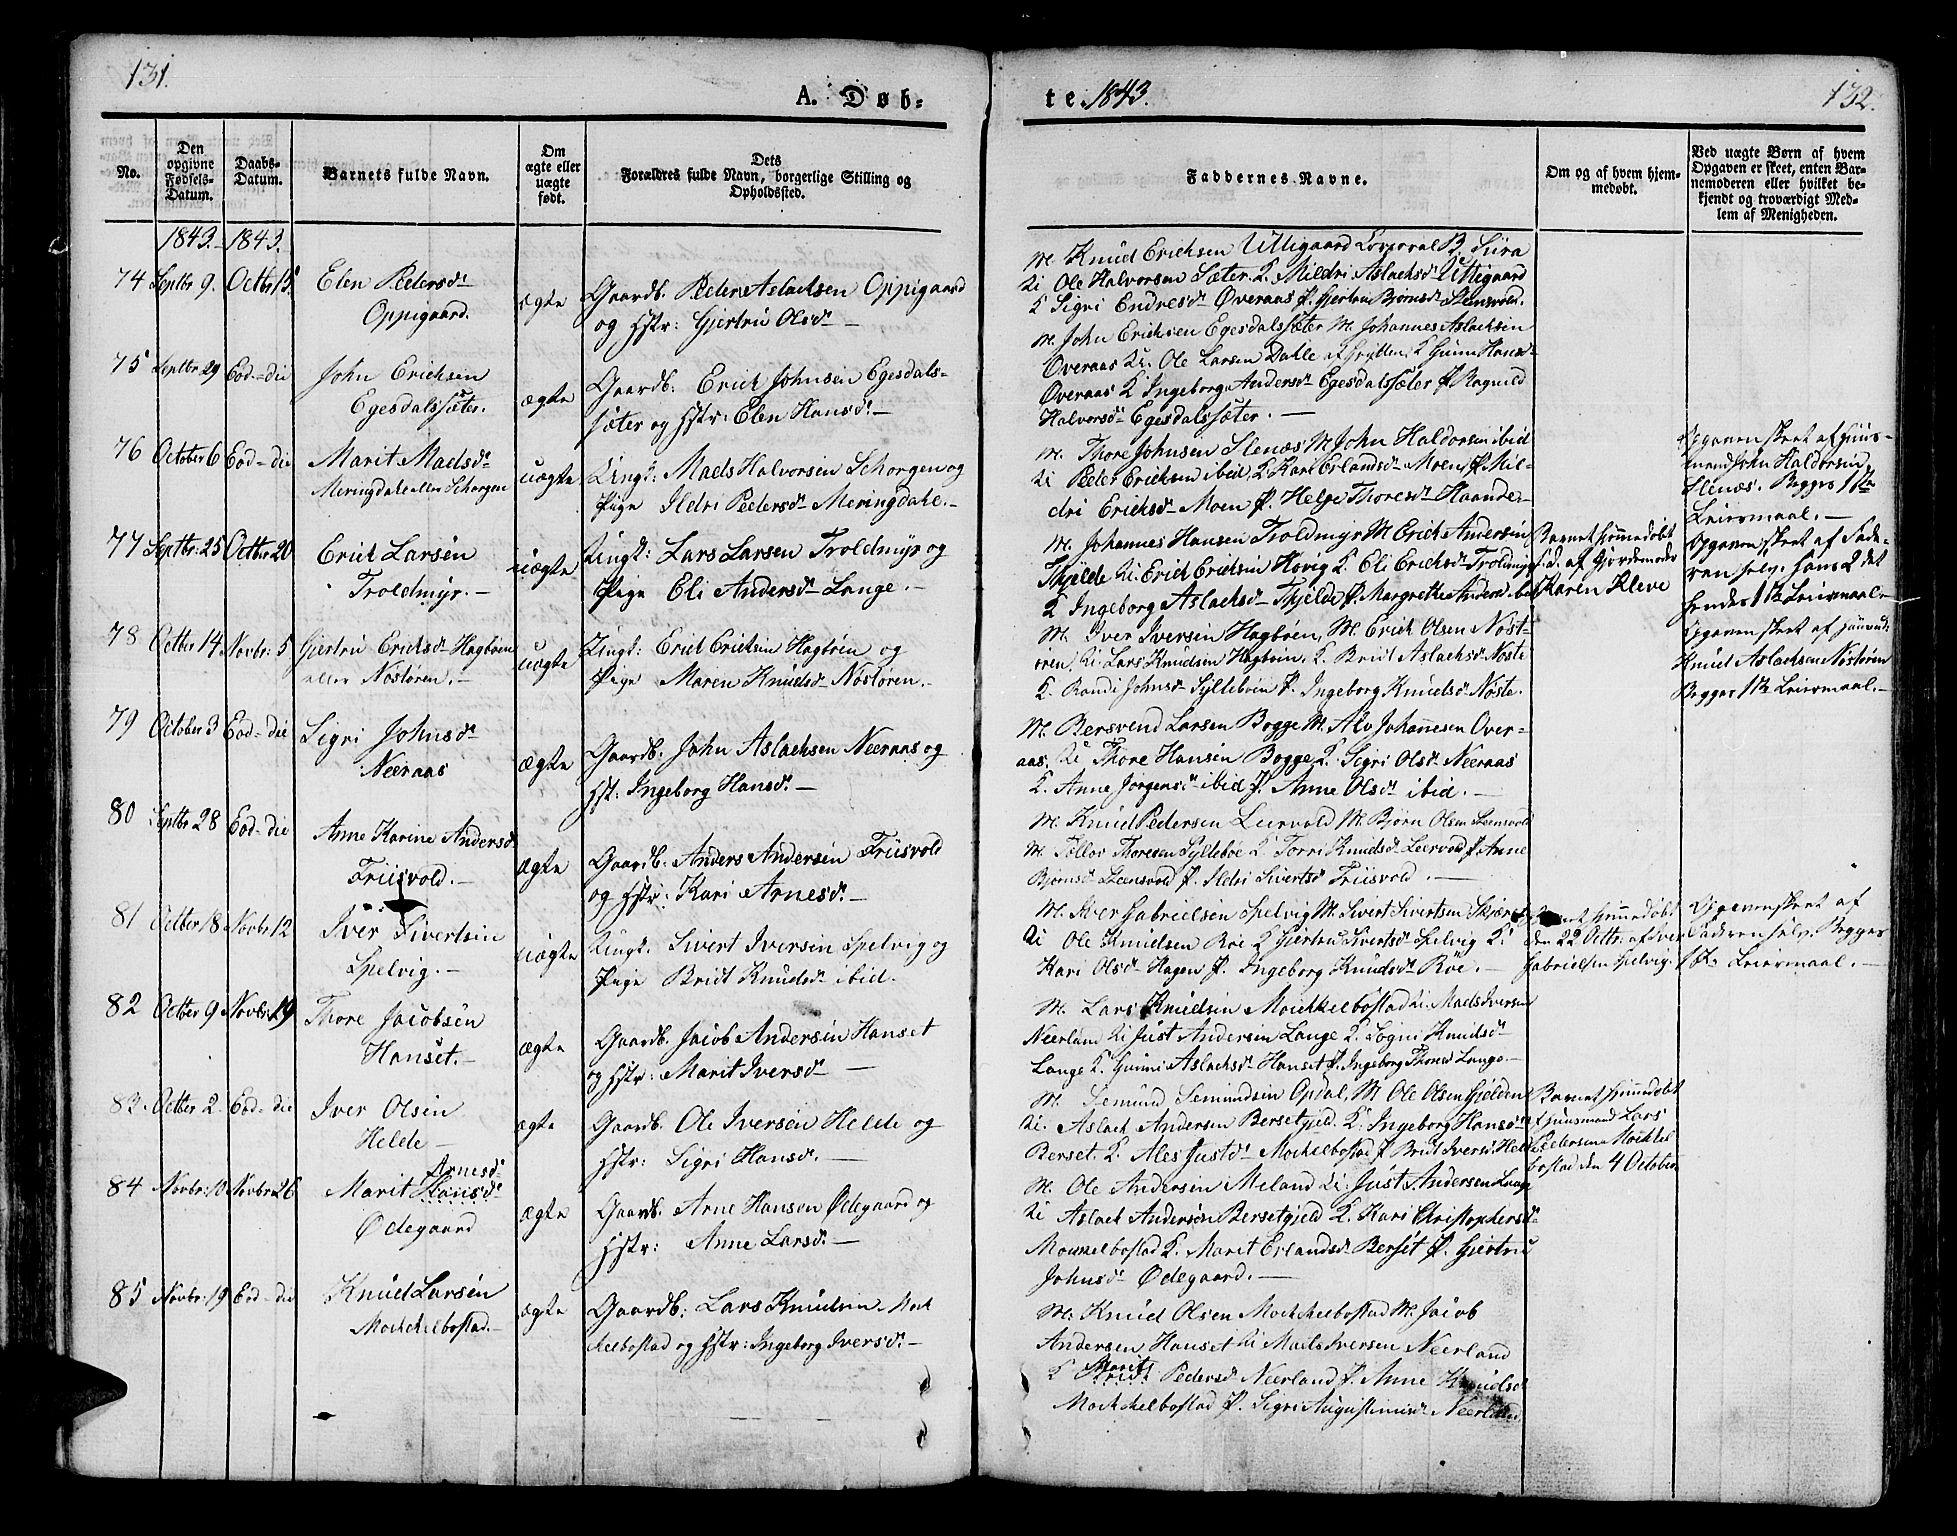 131.
A. Døb-
te 1843.
132.
No.
Den
opgivne
Fødsels-
Datum.
Daabs-
Datum.
Barnets fulde Navn.
Om
ægte eller
uægte
født.
Dets
Forældres fulde Navn, borgerlige Stilling og
Opholdssted.
Faddernes Navne.
Om og af hvem hjem-
medøbt.
Ved uægte Børn af hvem
Opgaven er skeet, enten Bar-
nemoderen eller hvilket be-
kjendt og troværdigt Med-
lem af Menigheden.
1843. 1843.
74 Septbr 9. Octbr 15. Elen Pedersd
Oppigaard.
ægte
Gaardb. Peder Aslachsen Oppigaard
og Hstr: Gjertru Olsd
M. Knud Erichsen Uttigaard Corporal B. Siira
Ole Halvorsen Sæter. K. Mildri Aslachsd Uttigaard
K Sigri Endresd Øveraas P. Gjertru Bjørnsd Steensvold.
75 Septbr 29 Eod-die John Erichsen
Egesdalssæter.
ægte
Gaardb: Erich Johnsen Egesdals-
sæter og Hstr: Elen Hansd.
M. John Erichsen Egesdalssæter M. Johannes Aslachsen
Overaas Ole Larsen Dalle af Grytten, K Gunn Hansd
Overaas K Ingeborg Andersd Egesdalssæter P. Ragnild
Halvorsd Egesdalssæter.
76 October 6 Eod-die Marit Madsd
Meringdahl eller Schorgen
uægte
Ungk: Mads Halvorsen Schorgen og
Pige Ildri Pedersd Meringdahl.
M. Thore Johnsen Slenæs M John Haldorsen ibid
Peder Erichsen ibid K Kari Erlandsd Moen P. Mil-
dri Erichsd Moen P. Helge Thoresd Haande
Opgaven skeet af Huus-
mand John Haldorsen
Slenæs. Begges 1ste
Leiersmaal.
77 Septbr. 25 Octbr 20 Erich Larsen
Troldmyr.
uægte
Ungk: Lars Larsen Troldmyr og
Pige Eli Andersd Lange.
M. Johannes Hansen Troldmyr M Erich Andersen
Thjelde Erich Erichsen Høvig K. Eli Erichsd Troldmyr
K Ingeborg Aslachsd Thjelde P. Margrethe Andersd ibid
Barnet hjemmedøbt
s. D. af Gjordemoder
Karen Kleve
Opgaven skeet af Fade-
ren selv. Hans 2det
hendes 1ste Leiersmaal
78 Octbr 14 Novbr: 5 Gjertru Erichsd Hagbøen
eller Nøstøren.
uægte
Ungk: Erich Erichsen Hagbøen og
Pige Maren Knudsd Nøstøren.
M. Iver Iversen Hagbøen, M. Erich Olsen Nøst-
øren, Lars Knudsen Hagbøen, K. Bridt Aslachsd Nøste
K. Randi Johnsd Syltebøen P. Ingeborg Knudsd Nøste.
Opgaven skeet af
Knud Aslachsen Nøstøren
Begges 1ste Leiersmaal.
79 October 3 Eod-die Sigri Johnsd
Neeraas
ægte
Gaardb. John Aslachsen Neeraas og
Hst: Ingeborg Hansd.
M. Bersvend Larsen Bogge M. Alv Johannesen Over-
aas. Thore Hansen Bogge K. Sigri Olsd Neeraas
K. Anne Jørgensd ibid P. Anne Olsd ibid.
80 Septbr 28 Eod-die Anne Karine Andersd
Friisvold.
ægte
Gaardb. Anders Andersen Friisvold
og Hstr: Kari Arnesd.
M. Knud Pedersen Leervold M. Bjørn Olsen Steensvold
M. Tollov Thoresen Syltebøe K. Torri Knudsd Leervold P. Anne
Bjørnsd Steensvold P. Ildri Sivertsd Friisvold.
81 Octbr 18 Novbr 12 Iver Sivertsen
Spelvig.
uægte
Ungk: Sivert Iversen Spelvig og
Pige Bridt Knudsd ibid.
M. Iver Gabrielsen Spelvig M. Sivert Sivertsen
Ole Knudsen Røe K Gjertru Sivertsd Spelvig K.
Kari Olsd Hagen P. Ingeborg Knudsd Røe.
Barnet hjemmedøbt
den 22 Octbr. af Iver
Gabrielsen Spelvig.
Opgaven skeet af
Faderen selv. Begges
1ste Leiersmaal.
82 Octbr 9 Novbr: 19 Thore Jacobsen
Hanset.
ægte
Gaardb. Jacob Andersen Hanset
og Hstr: Marit Iversd
M. Lars Knudsen Mochkelbostad Mads Iversen
Neerland Just Andersen Lange K. Sogni Knudsd
Lange K. Gunni Aslachsd Hanset P. Ingeborg Thoresd Lange
83. Octbr 2. Eod-die Iver Olsen
Helde
ægte
Gaardb. Ole Iversen Helde og
Hstr: Sigri Hansd.
M. Semund Semundsen Opdal, M Ole Olsen Gjelden
Aslach Andersen Bersetgjeld. K. Ingeborg Hansd
Berset. K. Ales Justsd Mochelbostad P Bridt Iversd Helde
Barnet hjemmedøbt
af Huusmand Lars
Pedersen Mochkel
bostad den 4 October
84 Novbr: 10 Novbr 26 Marit Hansd Arnesd
Ødegaard
ægte
Gaardb. Arne Hansen Ødegaard og
Hstr: Anne Larsd.
M. Ole Andersen Meland Just Andersen Lange
Aslach Andersen Bersetgjeld K. Kari Christophersd
Mochkelbostad K. Marit Erlandsd Berset P. Gjertru
Johnsd Ødegaard.
85 Novbr: 19 Eod-die Knud Larsen
Mochkelbostad.
ægte
Gaardb: Lars Knudsen Moch
kelbostad og Hstr: Ingeborg Iversd.
M. Knud Olsen Mochkelbostad M. Jacob
Andersen Hanset Mads Iversen Neerland
K Marit Pedersd Neerland P. Anne Knudsd
Mochkelbostad P. Sigri Augustinusd Neerland